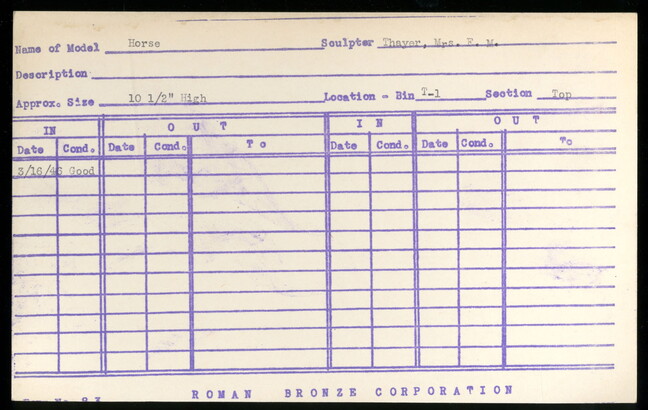 Name of Model Horse Sculptor Thayer, Mrs. E. M.
Description
Approx. Size 10 1/2" High Location - Bin T-1 Section Top
IN OUT IN OUT
Date Cond. Date Cond. To Date Cond. Date Cond. To
3/16/46 Good
ROMAN BRONZE CORPORATION